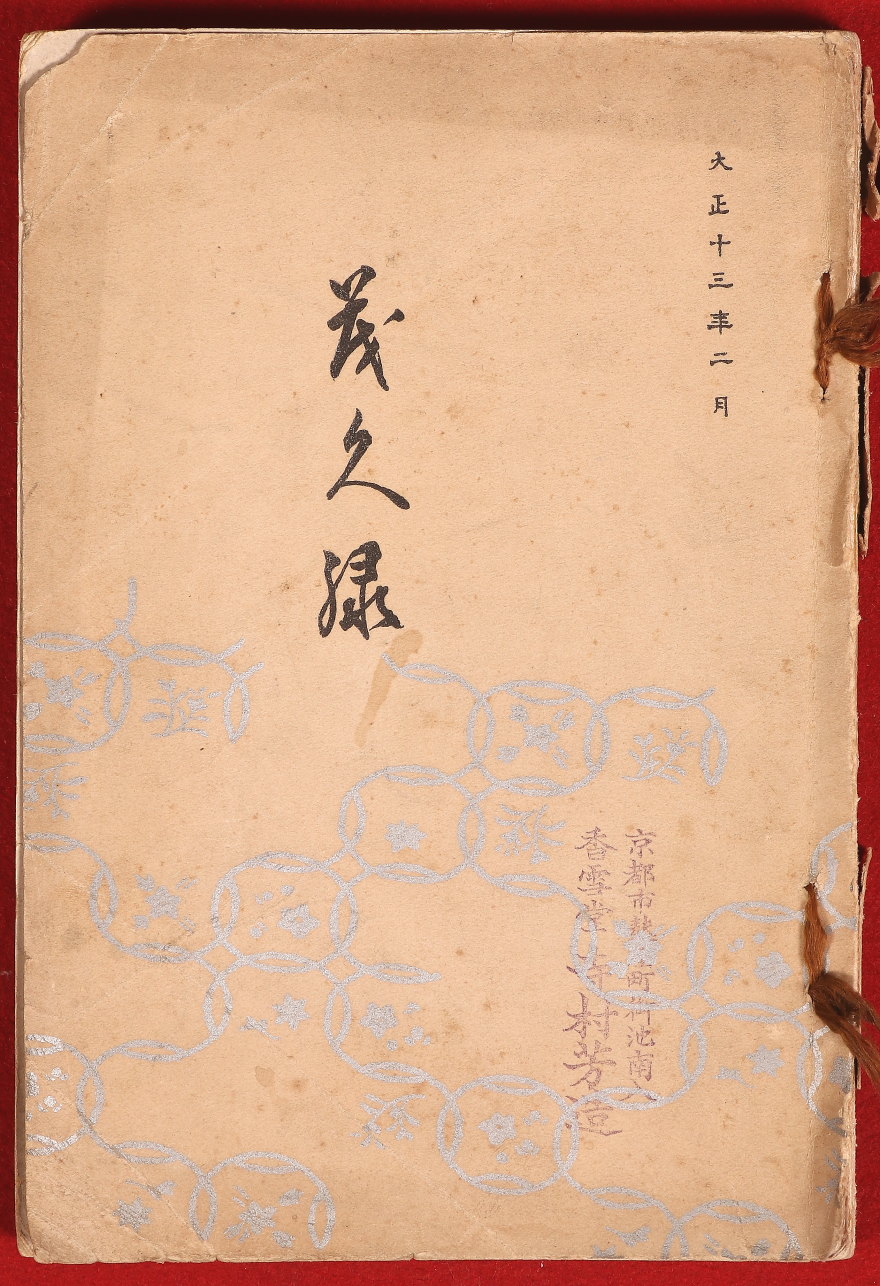 大正十三年二月
茂久録
京都市麩屋町御池南入
香雪堂 寺村芳造